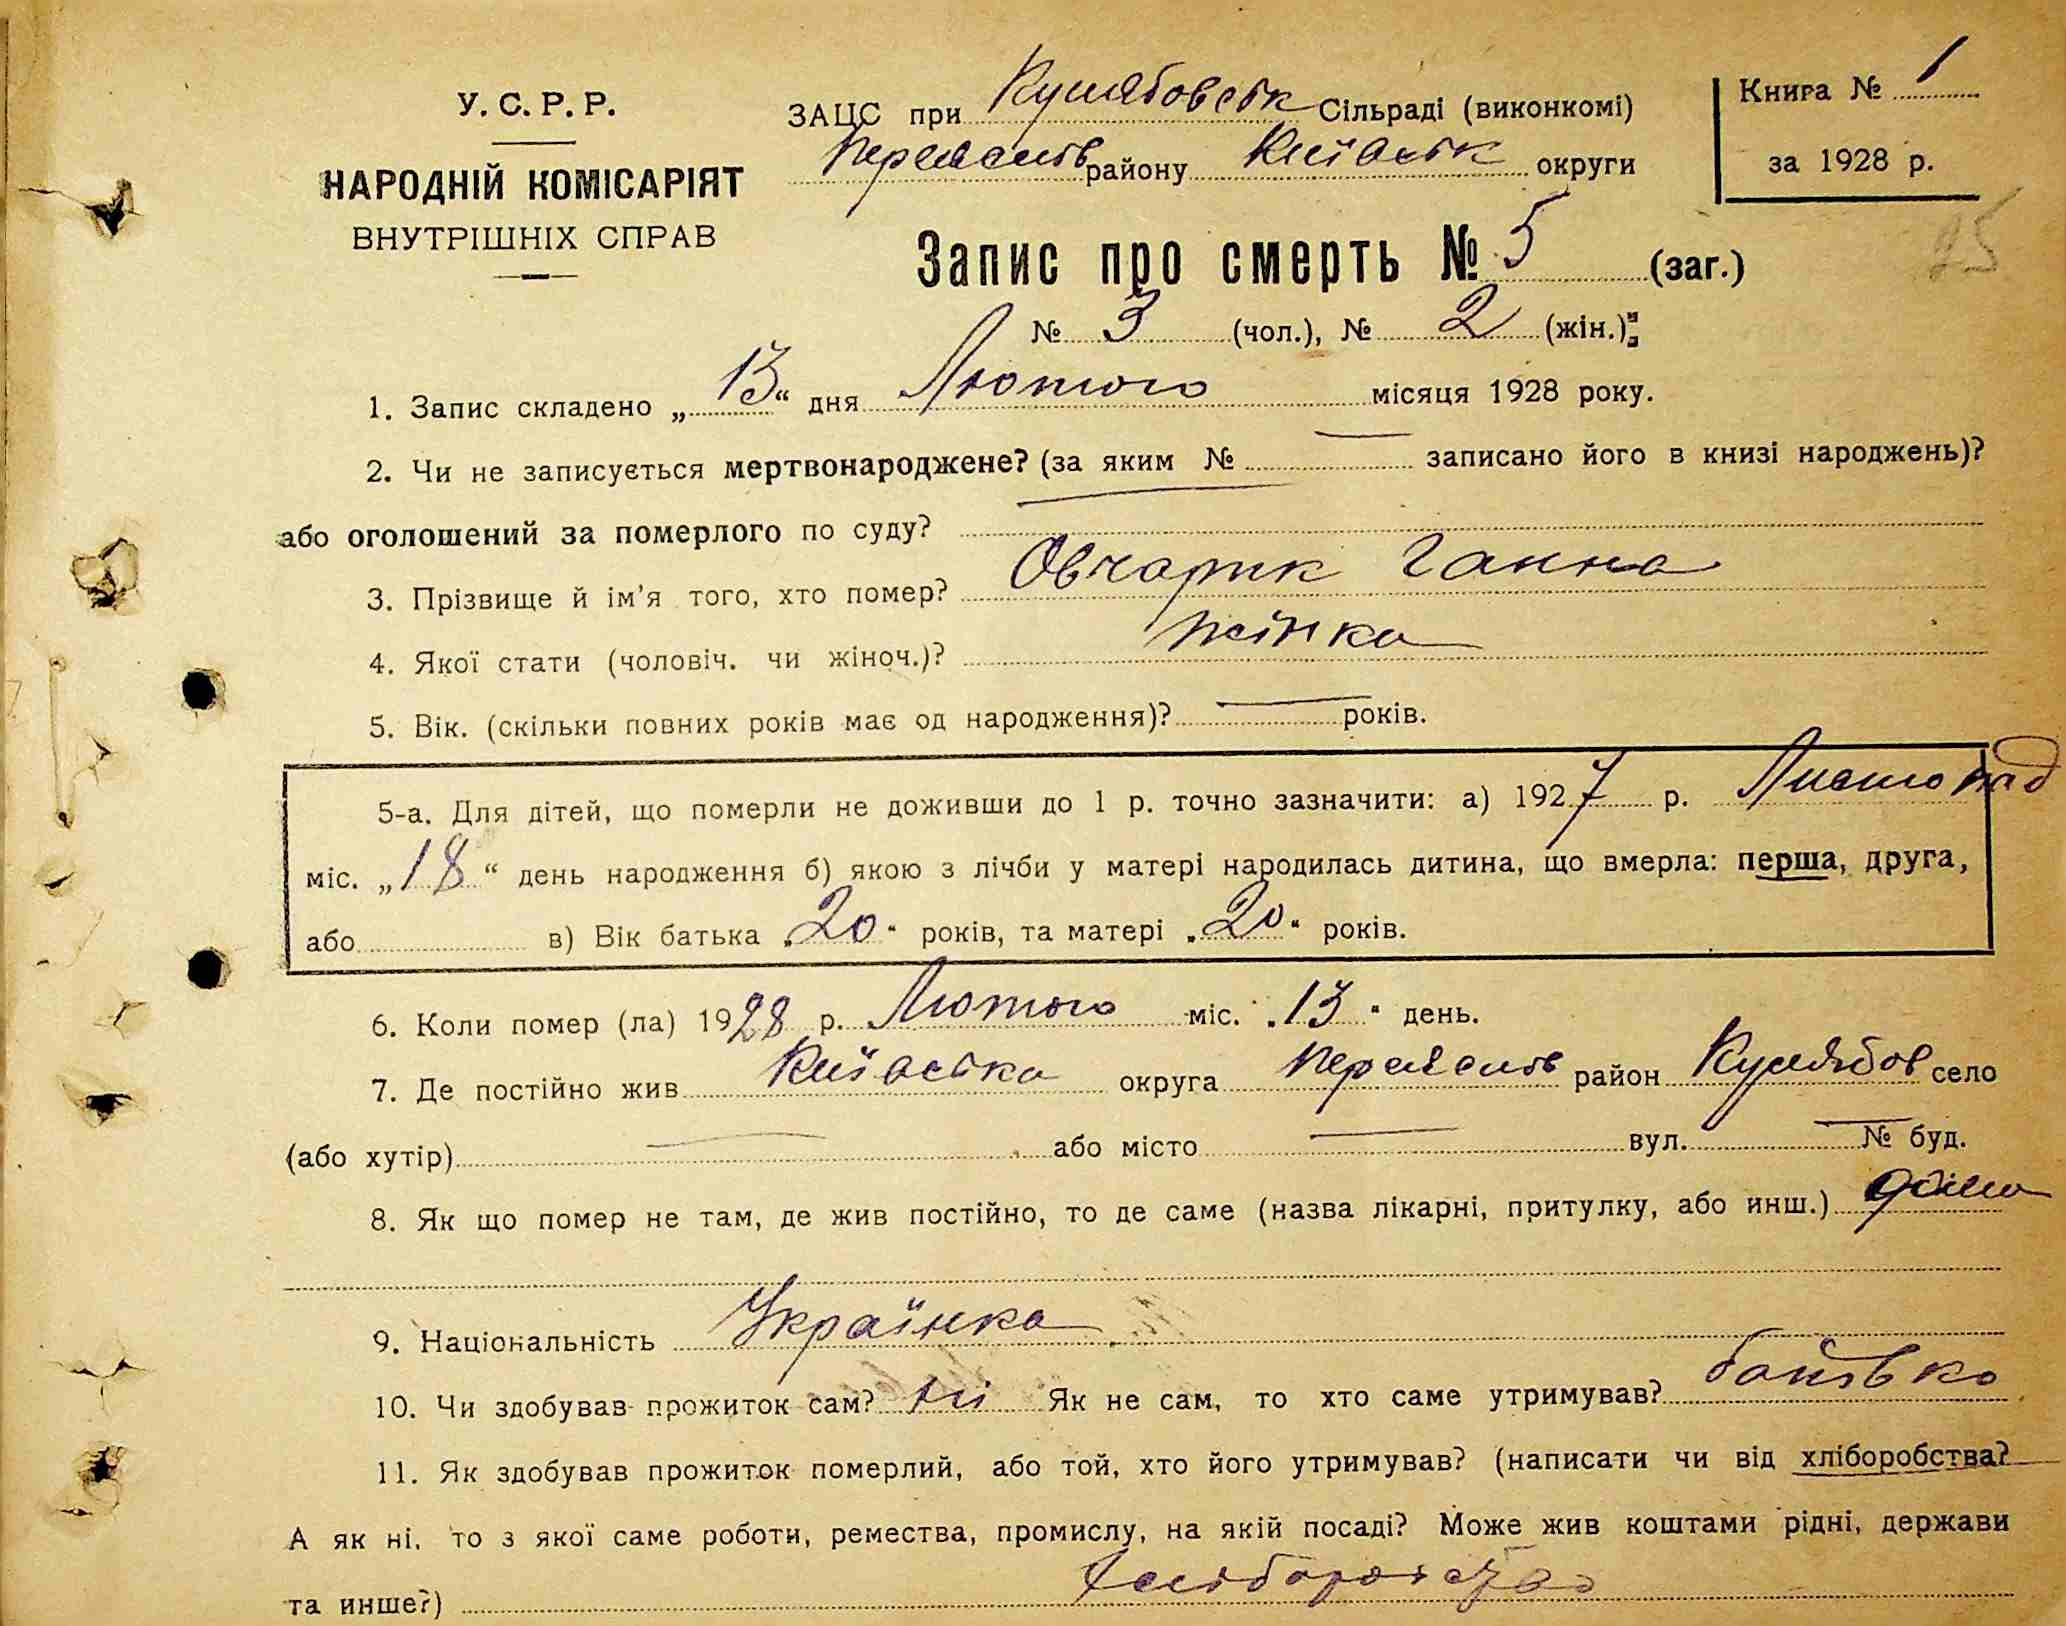 У. С. Р. Р.
НАРОДНІЙ КОМІСАРІЯТ
ВНУТРІШНІХ СПРАВ
ЗАЦС при Кулябовськ Сільраді (виконкомі)
Переяслів району Київськ округи
Книга № 1
за 1928 р.
25
Запис про смерть № 5 (заг.)
№ 3 (чол.), № 2 (жін.)
1. Запис складено „13“ дня Лютого місяця 1928 року.
2. Чи не записується мертвонароджене? (за яким № — записано його в книзі народжень)?
або оголошений за померлого по суду? —
3. Прізвище й ім'я того, хто помер? Овчарик Ганна
4. Якої стати (чоловіч. чи жіноч.)? жінка
5. Вік. (скільки повних років має од народження)? — років.
5-а. Для дітей, що померли не доживши до 1 р. точно зазначити: а) 1927 р. Листопад
міс. „18“ день народження б) якою з лічби у матері народилась дитина, що вмерла: перша, друга,
або в) Вік батька „20“ років, та матері „20“ років.
6. Коли помер (ла) 1928 р. Лютого міс. „13“ день.
7. Де постійно жив Київська округа Переяслів район Кулябов село
(або хутір) — або місто — вул. — № буд.
8. Як що помер не там, де жив постійно, то де саме (назва лікарні, притулку, або инш.) дома
9. Національність Українка
10. Чи здобував прожиток сам? ні Як не сам, то хто саме утримував? батько
11. Як здобував прожиток померлий, або той, хто його утримував? (написати чи від хліборобства?
А як ні, то з якої саме роботи, ремества, промислу, на якій посаді? Може жив коштами рідні, держави
та инше?) хліборобство